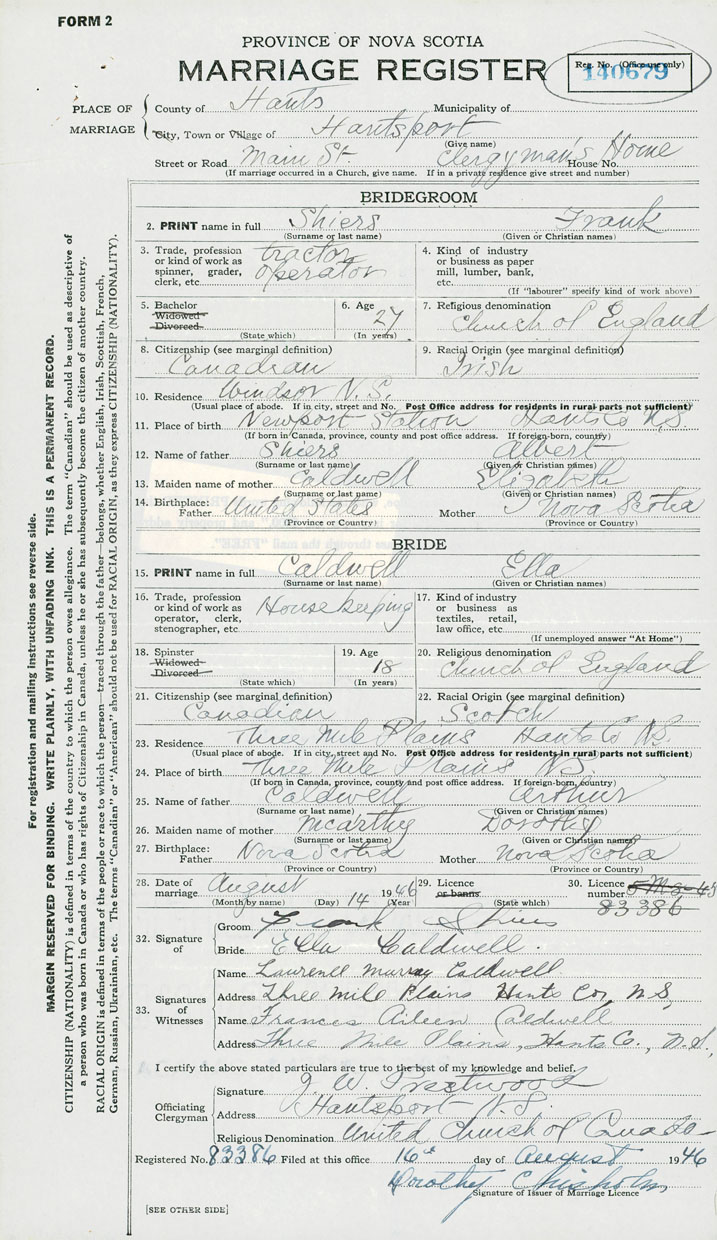 FORM 2
PROVINCE OF NOVA SCOTIA
MARRIAGE REGISTER
Reg. No. (Office use only)
140679
PLACE OF MARRIAGE
County of Hants Municipality of
City, Town or Village of Hantsport
(Give name)
Street or Road Main St. Clergyman's Home House No.
(If marriage occurred in a Church, give name. If in a private residence give street and number)
BRIDEGROOM
2. PRINT name in full Shiers Frank
(Surname or last name) (Given or Christian names)
3. Trade, profession or kind of work as spinner, grader, clerk, etc. tractor operator
4. Kind of industry or business as paper mill, lumber, bank, etc.
(If "labourer" specify kind of work above)
5. Bachelor
Widowed
Divorced
(State which)
6. Age 27
(In years)
7. Religious denomination
Church of England
8. Citizenship (see marginal definition)
Canadian
9. Racial Origin (see marginal definition)
Irish
10. Residence Windsor N.S.
(Usual place of abode. If in city, street and No. Post Office address for residents in rural parts not sufficient)
11. Place of birth Newport Station Hants Co N.S.
(If born in Canada, province, county and post office address. If foreign-born, country)
12. Name of father Shiers Albert
(Surname or last name) (Given or Christian names)
13. Maiden name of mother Caldwell Elizabeth
(Surname or last name) (Given or Christian names)
14. Birthplace: Father United States Mother Nova Scotia
(Province or Country) (Province or Country)
BRIDE
15. PRINT name in full Caldwell Ella
(Surname or last name) (Given or Christian names)
16. Trade, profession or kind of work as operator, clerk, stenographer, etc. Housekeeping
17. Kind of industry or business as textiles, retail, law office, etc.
(If unemployed answer "At Home")
18. Spinster
Widowed
Divorced
(State which)
19. Age 18
(In years)
20. Religious denomination
Church of England
21. Citizenship (see marginal definition)
Canadian
22. Racial Origin (see marginal definition)
Scotch
23. Residence Three Mile Plains Hants Co N.S.
(Usual place of abode. If in city, street and No. Post Office address for residents in rural parts not sufficient)
24. Place of birth Three Mile Plains N.S.
(If born in Canada, province, county and post office address. If foreign-born, country)
25. Name of father Caldwell Arthur
(Surname or last name) (Given or Christian names)
26. Maiden name of mother McCarthy Dorothy
(Surname or last name) (Given or Christian names)
27. Birthplace: Father Nova Scotia Mother Nova Scotia
(Province or Country) (Province or Country)
28. Date of marriage August 14 1946
(Month by name) (Day) (Year)
29. Licence or banns
(State which)
30. Licence number
83386
32. Signature of
Groom Frank Shiers
Bride Ella Caldwell.
33. Signatures of Witnesses
Name Laurence Murray Caldwell
Address Three Mile Plains Hants Co, N.S,
Name Frances Aileen Caldwell
Address Three Mile Plains, Hants Co., N.S.,
I certify the above stated particulars are true to the best of my knowledge and belief.
Officiating Clergyman
Signature J. W. Prestwood
Address Hantsport N.S.
Religious Denomination United Church of Canada
Registered No. 83386 Filed at this office 16th day of August 1946
Dorothy Chisholm
Signature of Issuer of Marriage Licence
[SEE OTHER SIDE]
For registration and mailing instructions see reverse side.
MARGIN RESERVED FOR BINDING. WRITE PLAINLY, WITH UNFADING INK. THIS IS A PERMANENT RECORD.
CITIZENSHIP (NATIONALITY) is defined in terms of the country to which the person owes allegiance. The term "Canadian" should be used as descriptive of
a person who was born in Canada or who has rights of Citizenship in Canada, unless he or she has subsequently become the citizen of another country.
RACIAL ORIGIN is defined in terms of the people or race to which the person—traced through the father—belongs, whether English, Irish, Scottish, French,
German, Russian, Ukrainian, etc. The terms "Canadian" or "American" should not be used for RACIAL ORIGIN, as they express CITIZENSHIP (NATIONALITY).